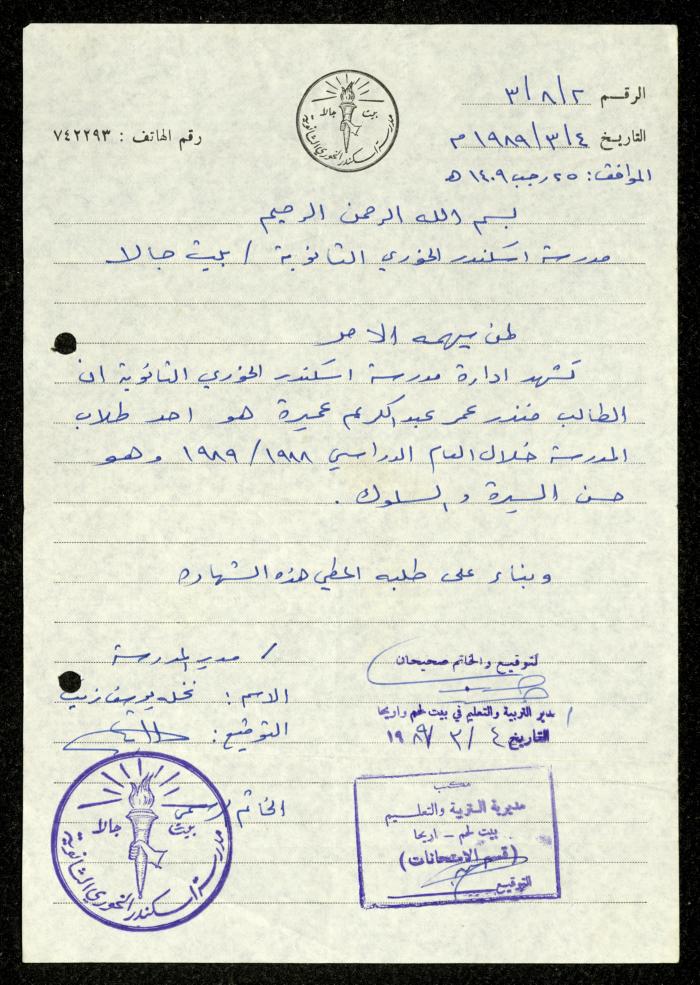 الرقم ٣/٨/٢
التاريخ ١٩٨٩/٣/٤ م
الموافق: ٢٥ رجب ١٤٠٩ هـ
بيت جالا
مدرسة اسكندر الخوري الثانوية
رقم الهاتف : ٧٤٢٢٩٣
بسم الله الرحمن الرحيم
مدرسة اسكندر الخوري الثانوية / بيت جالا
لمن يهمه الامر
تشهد ادارة مدرسة اسكندر الخوري الثانوية ان
الطالب منذر عمر عبدالكريم عميرة هو احد طلاب
المدرسة خلال العام الدراسي ١٩٨٨/ ١٩٨٩ وهو
حسن السيرة والسلوك .
وبناء على طلبه اعطي هذه الشهادة
/ مدير المدرسة
الاسم : نخله يوسف زيت
التوقيع :
الخاتم الرسمي
بيت جالا
مدرسة اسكندر الخوري الثانوية
لتوقيع والخاتم صحيحان
مدير التربية والتعليم في بيت لحم واريحا
التاريخ ٤ / ٣ / ١٩٨٩
مكتب
مديرية التربية والتعليم
بيت لحم - اريحا
(قسم الامتحانات)
التوقيع